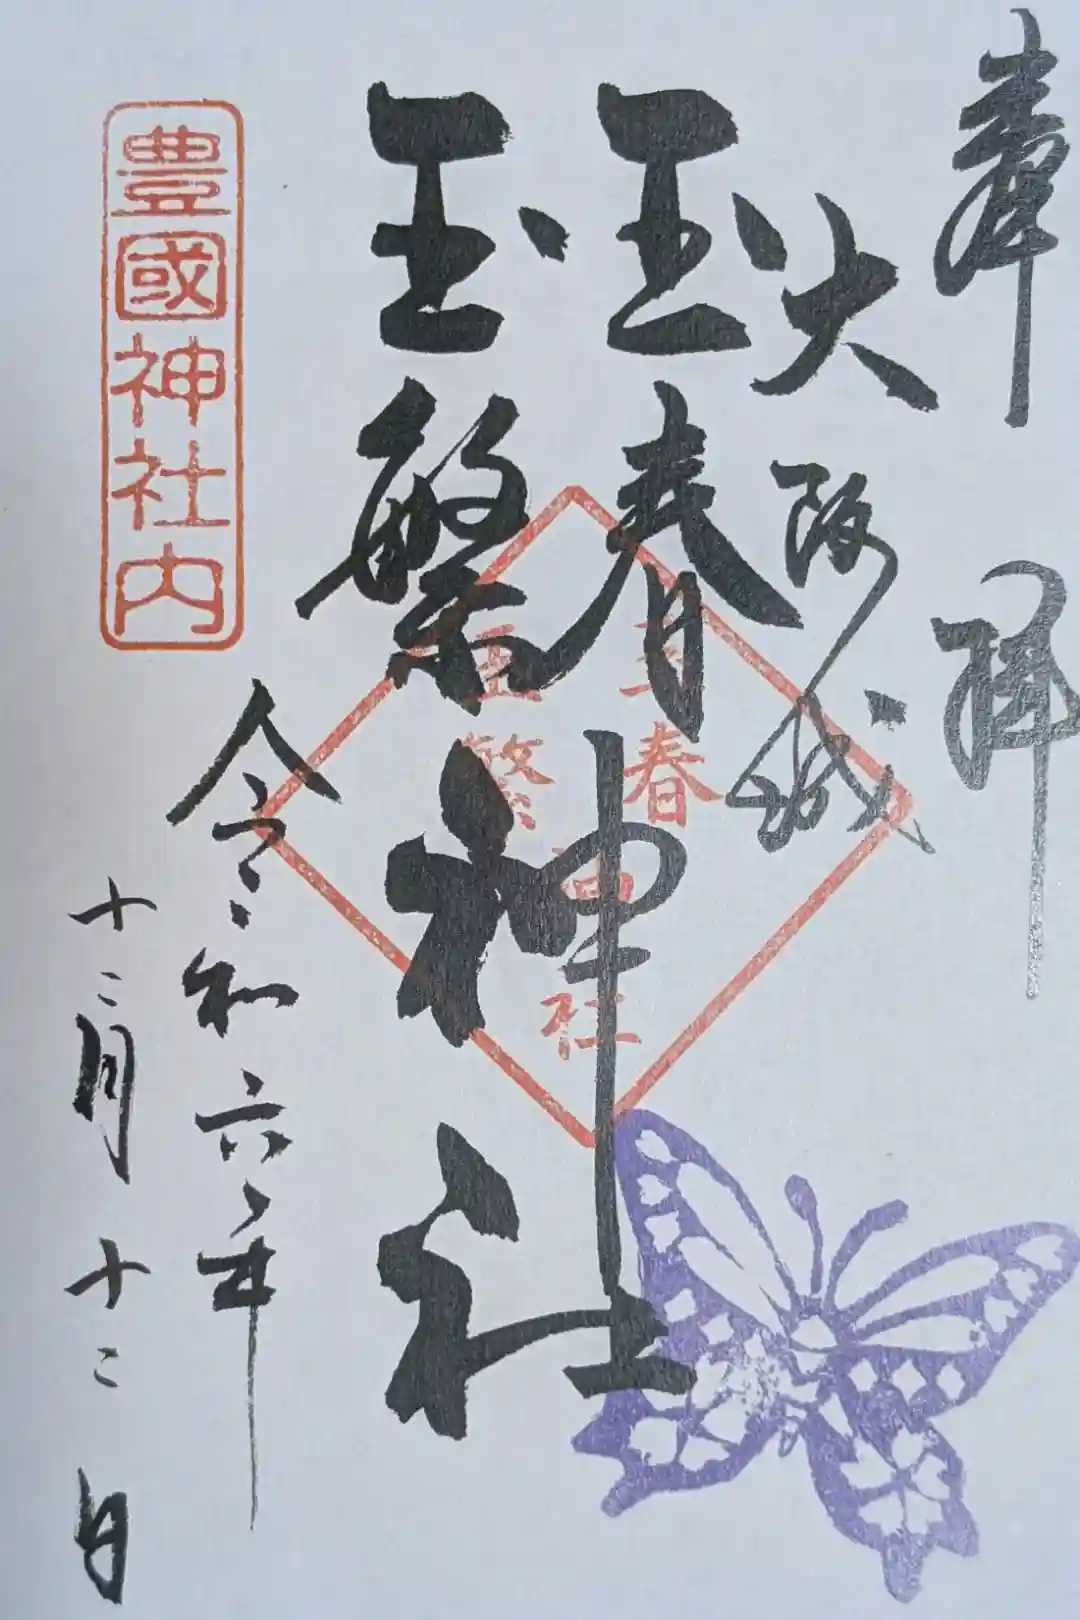 奉拝
大阪城
玉春
玉繁
神社
玉春
玉繁
神社
令和六年
十二月十二日
豊國神社内